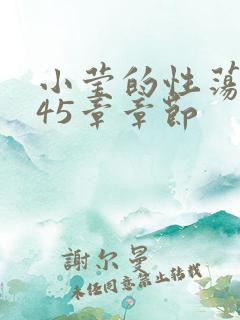 小莹的性荡
45章章节
謝尔曼
未经同意禁止转载